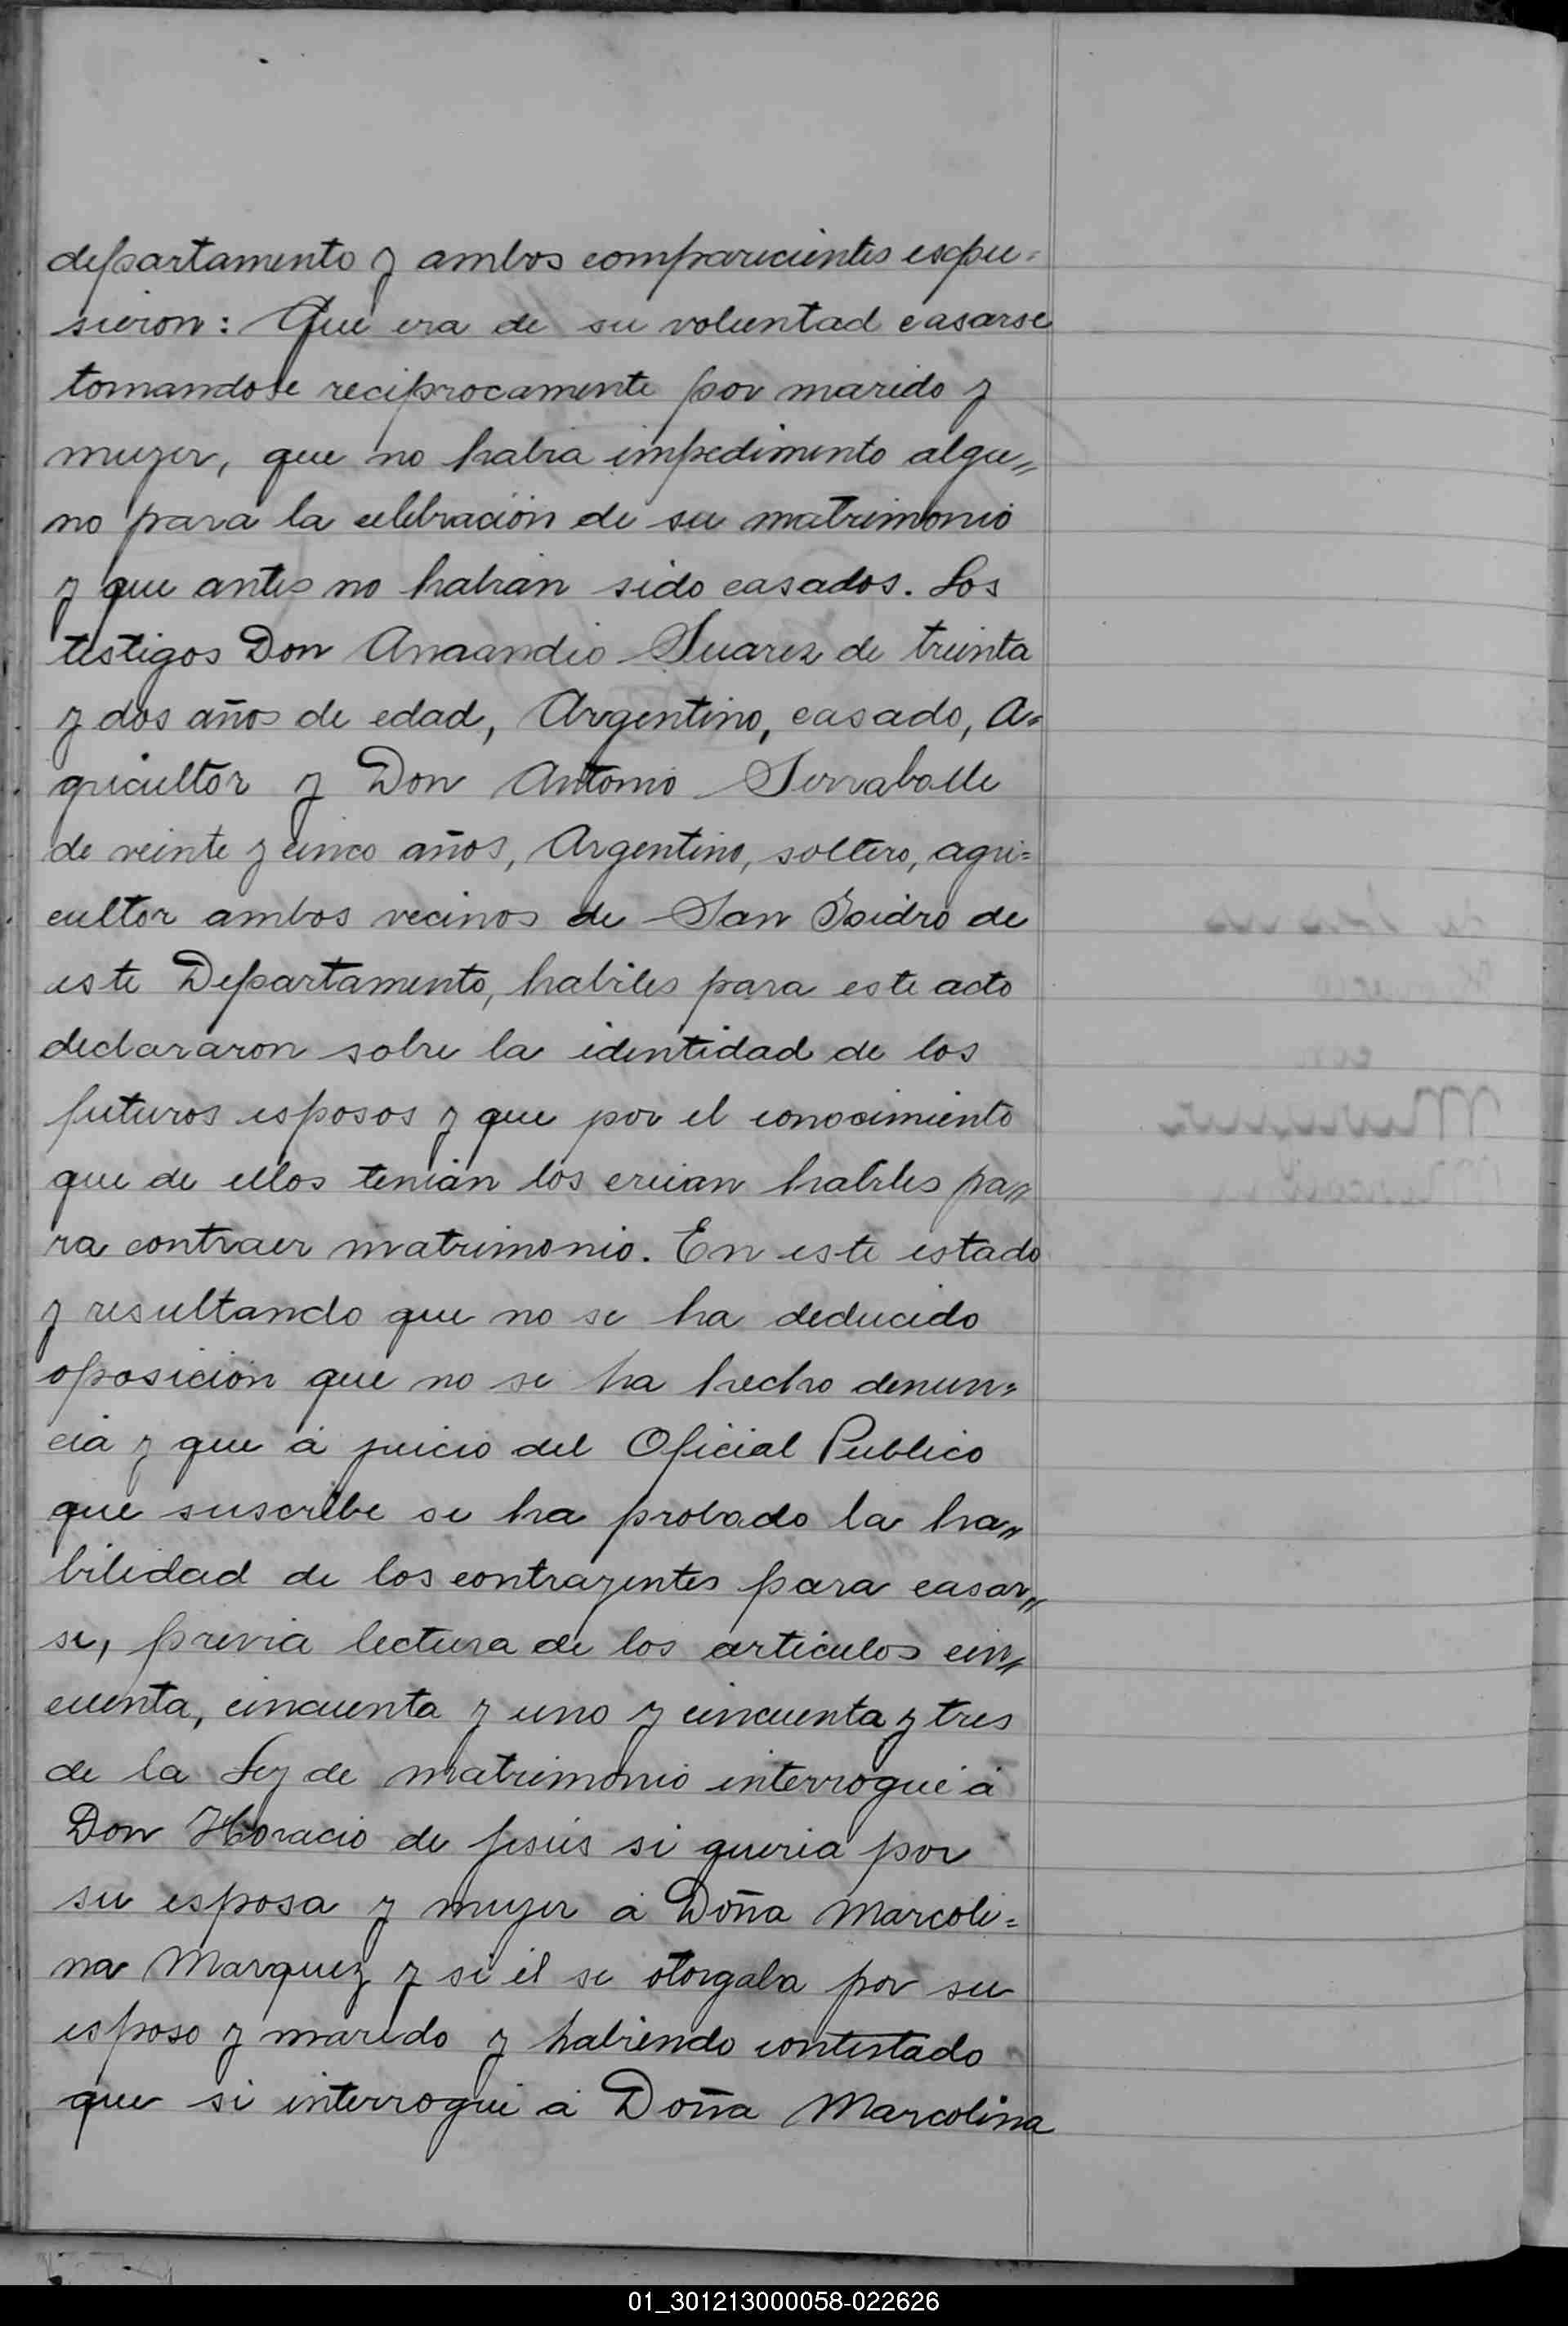 departamento y ambos comparecientes expu=
sieron: Que era de su voluntad casarse
tomandose reciprocamente por marido y
mujer, que no habia impedimento algu„
no para la celebración de su matrimonio
y que antes no habian sido casados. Los
testigos Don Amandio Suarez de treinta
y dos años de edad, Argentino, casado, A=
gricultor y Don Antonio Serraballe
de veinte y cinco años, Argentino, soltero, agri=
cultor ambos vecinos de San Isidro de
este Departamento, habiles para este acto
declararon sobre la identidad de los
futuros esposos y que por el conocimiento
que de ellos tenian los creian habiles pa„
ra contraer matrimonio. En este estado
y resultando que no se ha deducido
oposición que no se ha hecho denun=
cia y que á juicio del Oficial Publico
que suscribe se ha probado la ha„
bilidad de los contrayentes para casar„
se, previa lectura de los articulos cin„
cuenta, cincuenta y uno y cincuenta y tres
de la Ley de matrimonio interrogué á
Don Horacio de Jesús si queria por
su esposa y mujer á Doña Marcoli=
na Marquez y si él se otorgaba por su
esposo y marido y habiendo contestado
que si interrogué á Doña Marcolina
01_301213000058-022626